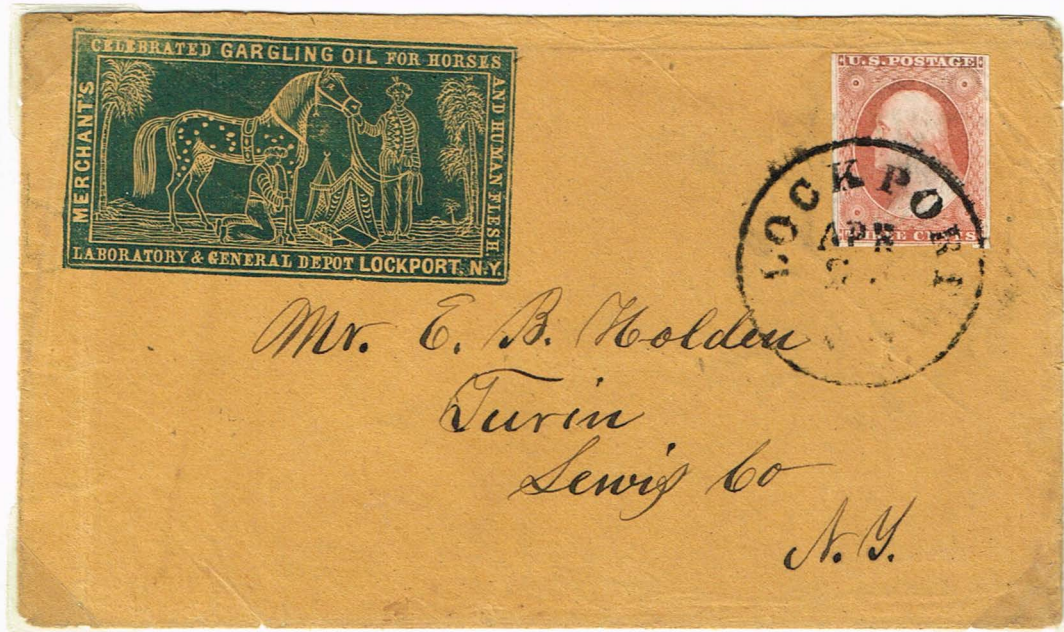 CELEBRATED GARGLING OIL FOR HORSES
AND HUMAN FLESH
MERCHANT'S
LABORATORY & GENERAL DEPOT LOCKPORT, N.Y.
U.S. POSTAGE
CENTS
LOCKPORT
APR
Mr. E. B. Holden
Turin
Lewis Co
N. Y.